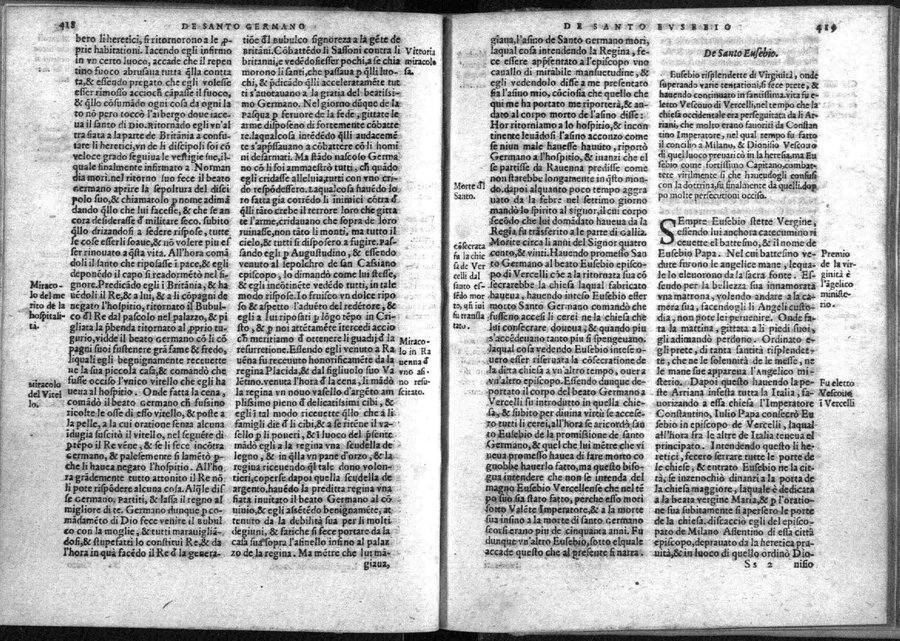 418
DE SANTO GERMANO
bero li heretici, si ritornorono a le p̄-
prie habitationi. Iacendo egli infirmo
in vn certo luoco, accade che il repen
tino fuoco abrusaua tutta q̄lla contra
ta, & essendo pregato che egli volesse
esser rimosso acciochē cāpasse il fuoco,
& q̄llo cōsumādo ogni cosa da ogni la
to nō però toccò l'albergo doue iace-
ua il santo di Dio. Ritornado egli vn'al
tra fiata a la parte de Britānia a confu-
tare li heretici, vn de li discipoli soi cō
veloce grado seguiua le vestigie sue, il-
quale finalmente infirmato a Norman
dia morì. nel ritorno suo fece il beato
Germano aprire la sepoltura del disci
polo suo, & chiamarolo p nome adimā
dando q̄llo che lui facesse, & che se an
cora desiderasse d' militare seco. subito
q̄llo drizandosi a sedere rispose, tutte
le cose esserli soaue, & nō volere piu es
ser rinouato a q̄sta vita. All'hora comā
doli il santo che riposasse i pace, & egli
deponēdo il capo si readormētò nel si-
gnore. Predicādo egli i Britānia, & ha
uēdoli il Re, & a lui, & a li cōpagni de
negato l'hospitio, ritornato il Bubul-
co d'l Re dal pascolo nel palazzo, & pi
gliata la p̄benda ritornato al p̄prio tu-
gurio, vidde il beato Germano cō li cō
pagni suoi sustenere grā fame & fredo,
liquali egli begnignamente riceuette
ne la sua piccola casa, & comandò che
fusse occiso l'vnico vitello che egli ha
ueua al hospitio. Onde fatta la cena,
comādò il beato Germano ch fussino
ricolte le osse di esso vitello, & poste a
la pelle, a la cui oratione senza alcuna
indugia suscitò il vitello, nel sequēte dì
p̄tēpo il Re vēne, & se li fece incōtra
Germano, & palesemente si lamētò p̄-
che li haueā negato l'hospitio. All'ho
ra grādemente tutto attonito il Re nō
li pote rispōdere alcuna cosa. Alq̄le dis
se Germano, Partiti, & lassa il regno al
migliore di te. Germano dunque p co-
mādamēto di Dio fece venire il bubul
co con la moglie, & tutti marauigliā-
dosi, & stupefatti lo constituì Re, & da
l'hora in quà facēdo il Re d'la genera-
Miraco-
lo del me
rito de la
hospitali-
tà.
miracolo
del Vitel
lo.
tiōe d'l bubulco signoreza a la gēte de
Britāni. Cōbattēdo li Sassoni contra li
britanni, e vedēdosi esser pochi, a se chia
morono li santi, che passaua p q̄lli luo-
chi, & p̄dicādo q̄lli acceleratamēte tut
ti s'annotauano a la gratia del beatissi-
mo Germano. Nel giorno dūque de la
Pasqua p feruore de la fede, gittate le
arme disposēno di fortemente cōbatte
re. laqual cosa intēdēdo q̄lli audacemē
te s'appssauano a cōbattere cō li homi
ni desarmati. Ma stādo nascoso Germa
no cō li soi ammaestrò tutti, ch' quādo
egli cridasse alleluia, tutti con vno cri-
do respōdessero. Laqual cosa hauēdo lo
ro fatta già corrēdo li inimici cōtra d'
q̄lli tāto crebe il terrore loro che gitta
te l'arme, cridauano che sopra de loro
ruinasse, non tāto li monti, ma tutto il
cielo, & tutti si disposero a fugire. Pas-
sando egli p Augustuduno, & essendo
venuto al sepolchro de san Cassiāno
episcopo, lo dimandò come lui stesse,
& egli incōtinēte vedēdo tutti, in tale
modo rispose. Io fruisco vn dolce ripo
so & aspetto l'aduēto del redētore, &
egli a lui ripossati p lōgo tēpo in Cri-
sto, & p noi attētamēte itercedi accio
ch' meritiamo d' ottenere li guadij d' la
resurretione. Essendo egli venuto a Ra
uēna fu receuuto honorificamēte da la
regina Placida, & dal figliuolo suo Va
lētino. venuta l'hora d'la cena, li mādò
la regina vn nouo vasello d'argēto am
plissimo pieno di delicatissimi cibi, &
egli il tal modo riceuette q̄llo che a li
famigli die d' li cibi, & a se ritēne il va-
sello p li poueri, & i luoco del p̄sente
mādò egli a la regina vna scudella de
legno, & in q̄lla vn pane d'orzo, & la
regina riceuendo q̄l tale dono volon-
tieri, coperse dapoi quella scudella de
argento. hauēdo la preditta regina vna
fiata inuitato il beato Germano al cō
uiuio, & egli asētēdo benignamēte, at
tenuto da la dubilità sua per li molti
degiuni, & fatiche si fece portare da la
casa sua sopra l'asinello insino al palaz
zo de la regina. Ma mētre che lui mā-
giaua,
Vittoria
miracolo
sa.
Miraco-
lo in Ra
uenna d'
vno asi-
no resu-
scitato.
DE SANTO EVSEBIO
419
giaua, l'asino de Santo Germano morì,
laqual cosa intendendo la Regina, fe-
ce essere appsentato a l'episcopo vno
cauallo di mirabile mansuetudine, &
egli vedendolo disse a me presentato
sia l'asino mio, cōciosia che quello che
qui me ha portato me riporterà, & an-
dato al corpo morto de l'asino disse:
Hor ritorniamo a lo hospitio, & incon
tenente leuādosi l'asino acconzo come
se niun male hauesse hauuto, riportò
Germano a l'hospitio, & inanzi che el
se partisse da Rauenna predisse como
non starebbe longamente in q̄sto mon-
do. dapoi alquanto poco tempo aggra
uato da la febre nel settimo giorno
mandò lo spirito al signor, il cui corpo
sicōdo che lui domādato haueua da la
Regia fu trāsferito a le parte di Gallia.
Morite circa li anni del Signor quatro
cento, & vinti. Hauendo promesso San
to Germano al beato Eusebio episco-
po di Vercelli cōe a la ritornata sua cō
secrarebbe la chiesa laqual fabricata
haueua, hauendo inteso Eusebio esser
morto Santo Germano comandò che
fusseno accesi li cerei ne la chiesa che
lui consecrare doueua, & quando piu
s'accēdeuano tanto piu si spengeuano.
laqual cosa vedendo Eusebio intese do
uero esser riseruata la cōsecratione de
la ditta chiesa a vn'altro tempo, ouer a
vn'altro episcopo. Essendo dunque de-
portato il corpo del beato Germano a
Vercelli fu introdutto in quella chie-
sa, & subito per diuina virtù se accese-
to tutti li cerei, all'hora se aricordò san
to Eusebio de la promissione de santo
Germano, & que che lui mētre che vi-
ueua promesso haueua di fare morto co
gnobbe hauerlo fatto, ma questo biso-
gna intendere che non se intenda del
magno Eusebio Vercellense che nel tē
po suo sia stato fatto, perche esso morì
sotto Valēte Imperatore, & a la morte
sua insino a la morte di santo Germano
scorserano piu de cinquanta anni. Fu
dunque vn'altro Eusebio, sotto elquale
accade questo che al presente si narra.
Morte d'l
Santo.
cōsecrata
fu la chie
sa de Ver
celli dal
santo es-
sēdo mor
to, qn iui
fu transla
tato.
De Santo Eusebio.
Eusebio risplendette di Virginità, onde
superando varie tentationi, si fece prete, &
hauendo continuato in santissima vita fu e-
letto Vescouo di Vercelli, nel tempo che la
chiesa occidentale era perseguitata da li Ar
riani, che molto erano fauoriti da Constan
tino Imperatore, nel qual tempo fu fatto
il concilio a Milano, & Dionisio Vescouo
di quel luoco preuaricò in la heresia. ma Eu
sebio come fortissimo Capitano, combatte-
tere virilmente si che hauendosi gli confusi
con la dottrina, fu finalmente da quelli, dop
po molte persecutioni occiso.
SEmpre Eusebio stette Vergine,
essendo lui anchora catecumino ri
ceuette il battesmo, & il nome de
Eusebio Papa. Nel cui battesimo ve-
dute furono le angelice mane, lequa-
le lo eleuorono da la sacra fonte. Es-
sendo per la bellezza sua innamorata
vna matrona, volendo andare a la ca-
mera sua, facendogli li Angeli custo-
dia, non pote lei peruenire. Onde fa-
ta la mattina, gittata a li piedi suoi,
gli adimandò perdono. Ordinato e-
gli prete, di tanta santità risplendet-
te, che ne le solennità de le messe, ne
le mane sue appareua l'Angelico mi-
sterio. Dapoi questo hauendo la pe-
ste Arriana infesta tutta la Italia, fa-
uorizando a essa chiesa l'Imperatore
Constantino, Iulio Papa consecrò Eu
sebio in episcopo de Vercelli, laqual
all'hora fra le altre de Italia teneua el
principato. Intendendo questo li he-
retici, fecero serrare tutte le porte de
le chiese, & entrato Eusebio ne la cit-
tà, se inzenochiò dinanzi a la porta de
la chiesa maggiore, laquale è dedicata
a la beata vergine Maria, & p l'oratio-
ne sua subitamente si apersero le porte
de la chiesa. discacciò egli del episco-
pato de Milano Assentino di essa città
episcopo, deprauato da la heretica pra-
uità, & in luoco di quello ordinò Dio-
Ss 2
nisio
Premio
de la vir-
ginità è
l'āgelico
ministe-
rio.
Fu eletto
Vescouo
i Vercelli